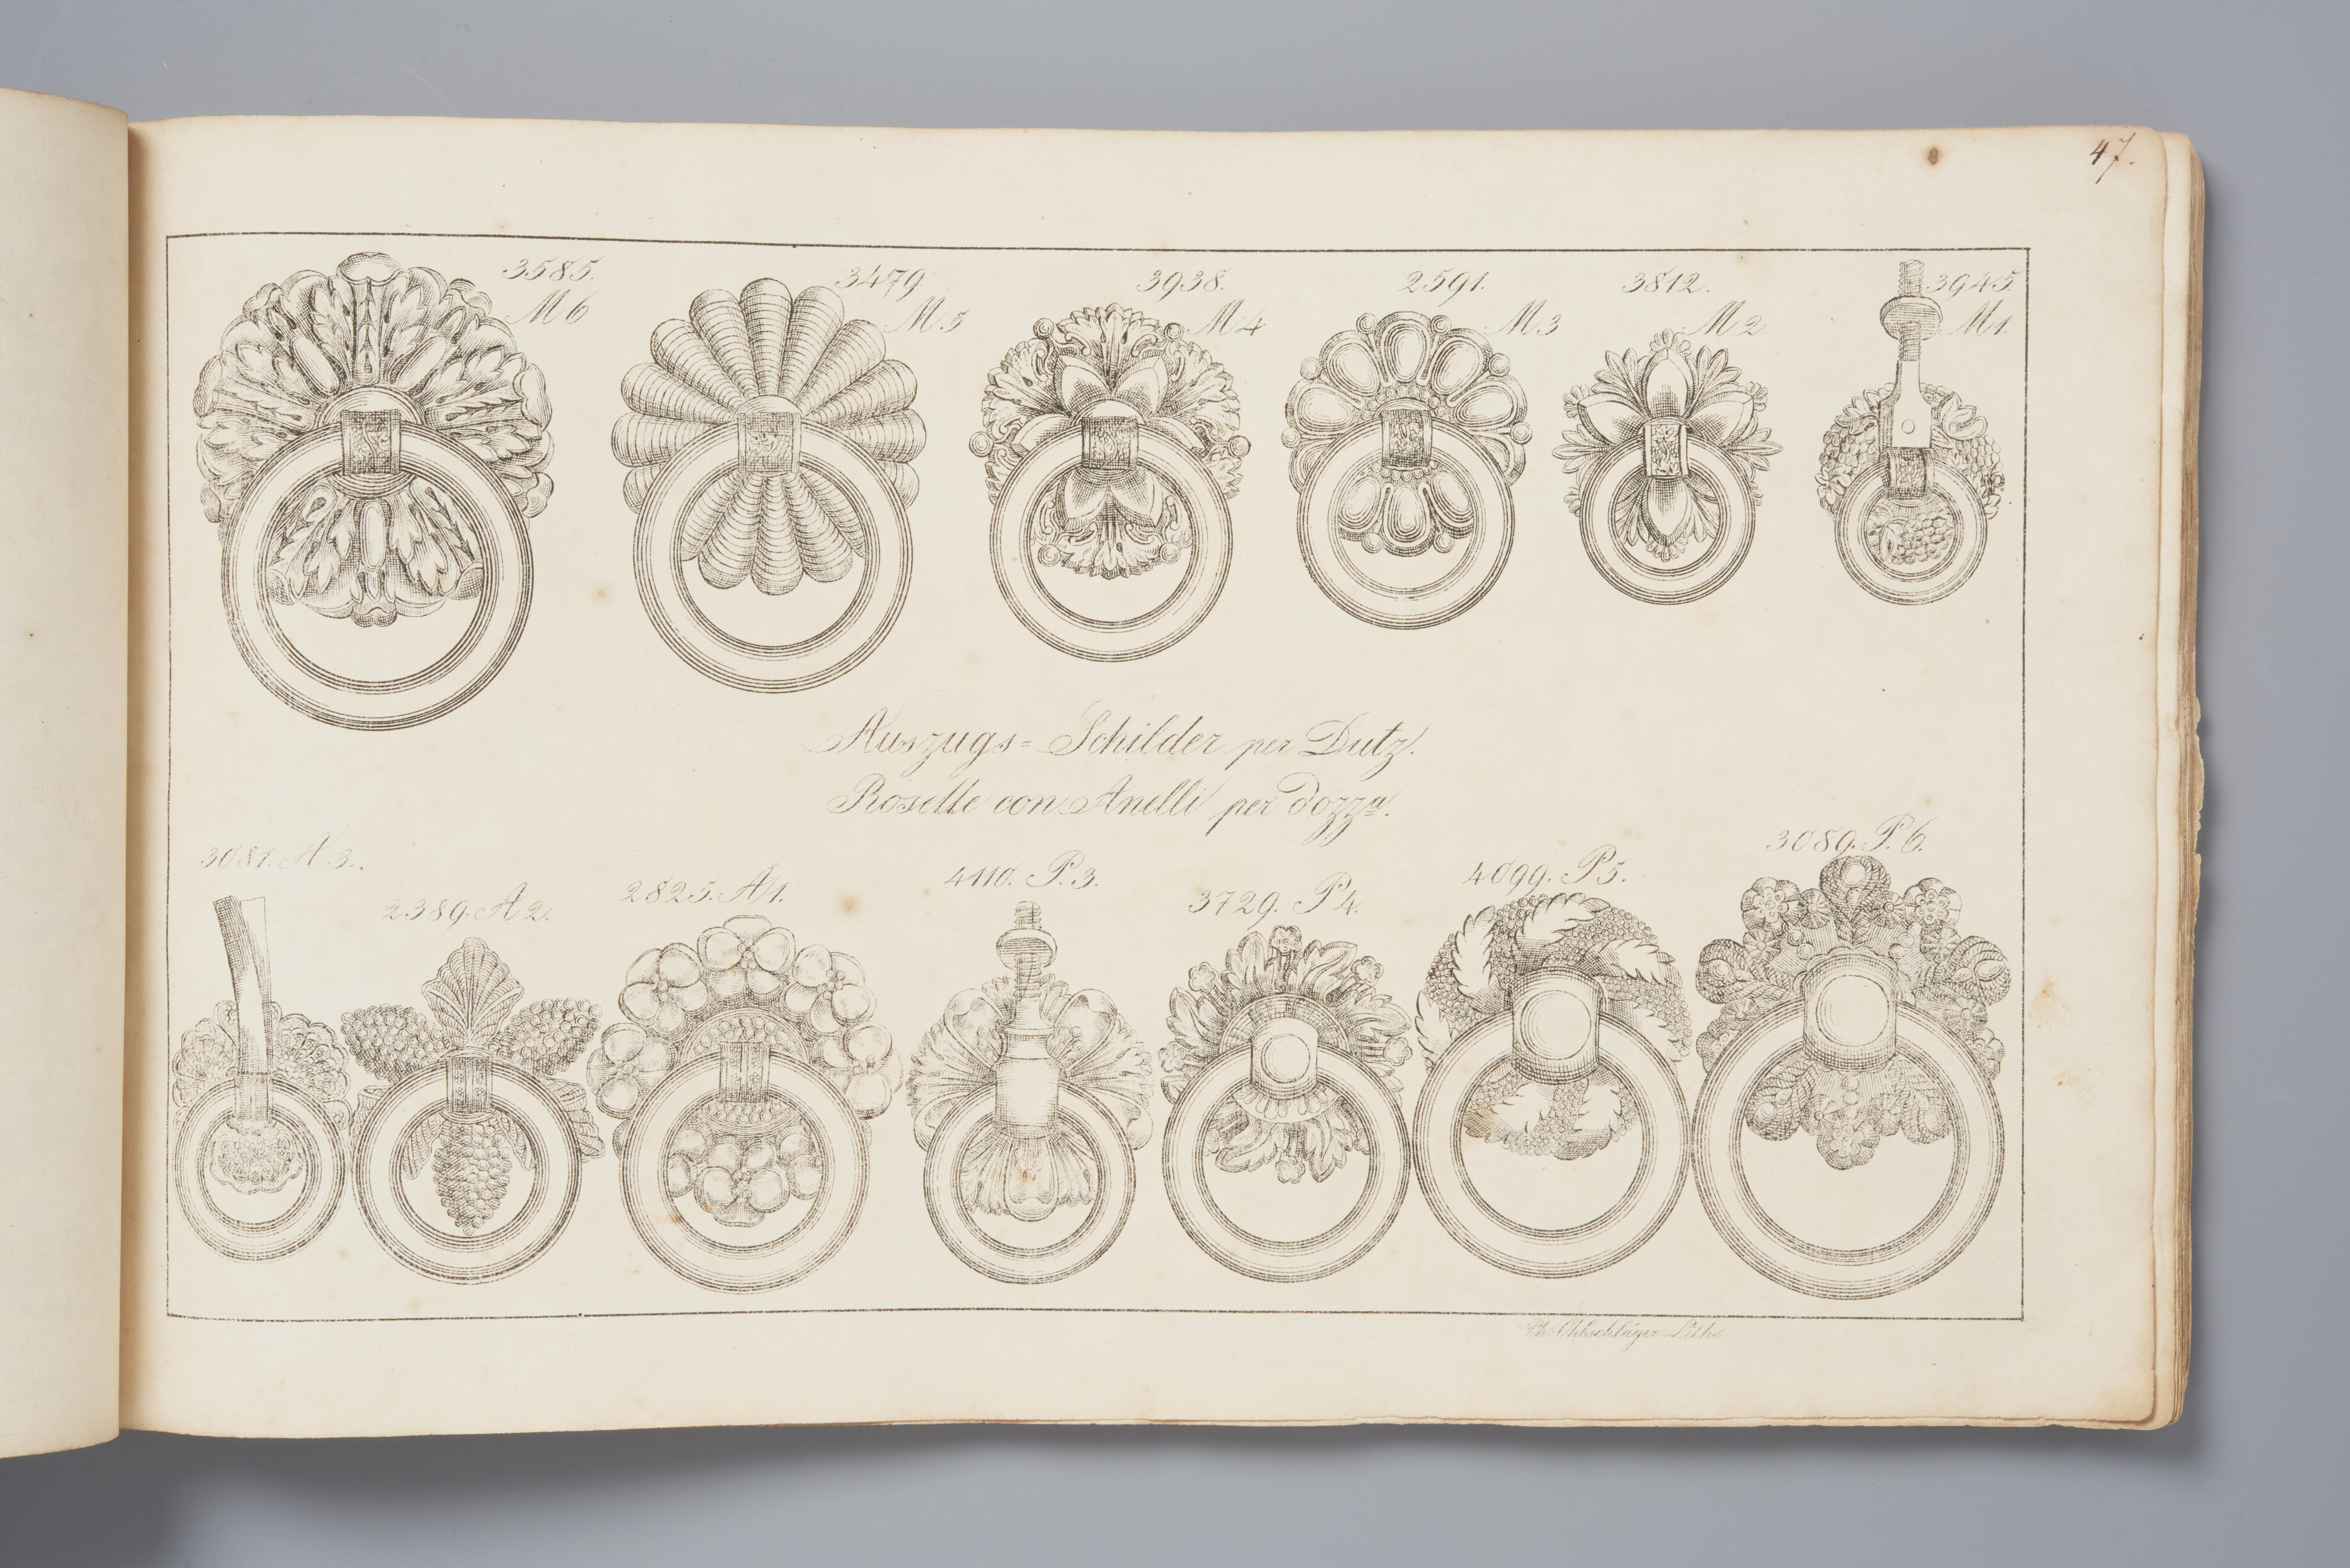 47.
3585.
M 6
3479
M.5
3938.
M 4
2591.
M.3
3812.
M 2
3945.
M 1.
Auszugs=Schilder per Dutz.
Rosette con Anelli per dozza.
3081. A 3.
2389. A 2.
2825. A 1.
4110. P. 3.
3729. P 4.
4099. P 5.
3089. P. 6.
Ph. Ohlschläger Litho.